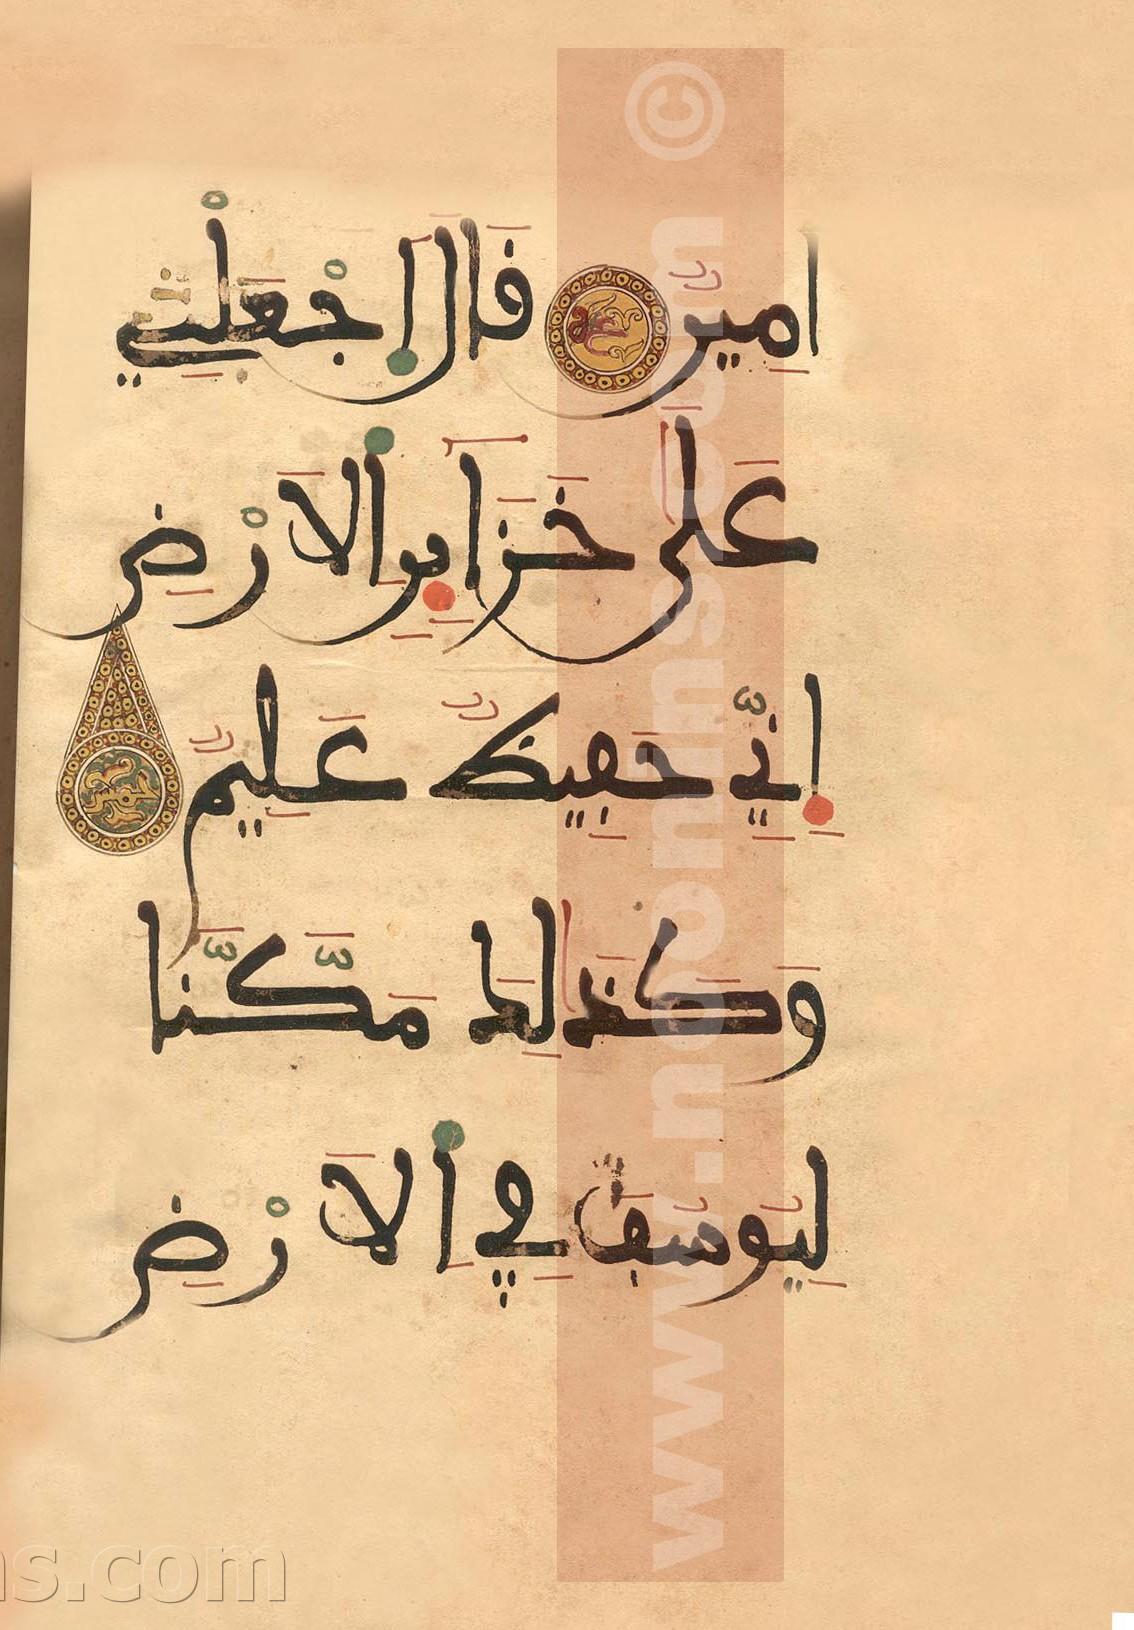 اَمِينٌ قَالَ اَ۬جْعَلْنِے
عَلَىٰ خَزَآئِنِ اِ۬لَارْضِ
إِنِّے حَفِيظٌ عَلِيمٌ
وَكَذَٰلِكَ مَكَّنَّا
لِيُوسُفَ فِے اِ۬لَارْضِ
© www.noonins.com
ns.com